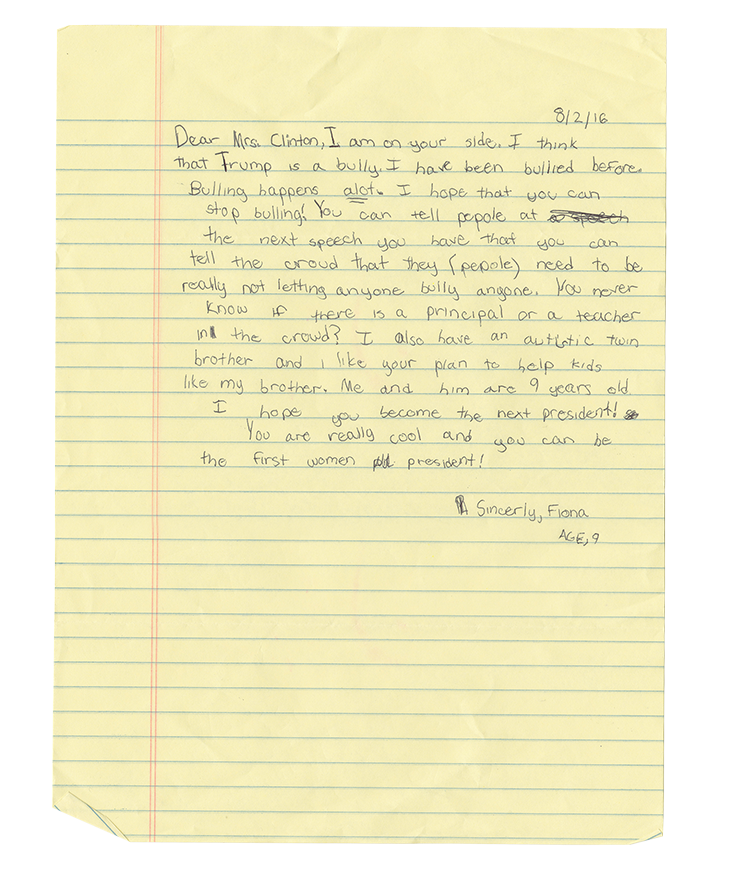 8/2/16
Dear Mrs. Clinton, I am on your side. I think
that Trump is a bully. I have been bullied before.
Bulling happens alot. I hope that you can
stop bulling! You can tell pepole at a speech
the next speech you have that you can
tell the croud that they (pepole) need to be
really not letting anyone bully angone. You never
know if there is a principal or a teacher
in the crowd? I also have an autistic twin
brother and i like your plan to help kids
like my brother. Me and him are 9 years old.
I hope you become the next president!
You are really cool and you can be
the first women president!
Sincerly, Fiona
AGE, 9